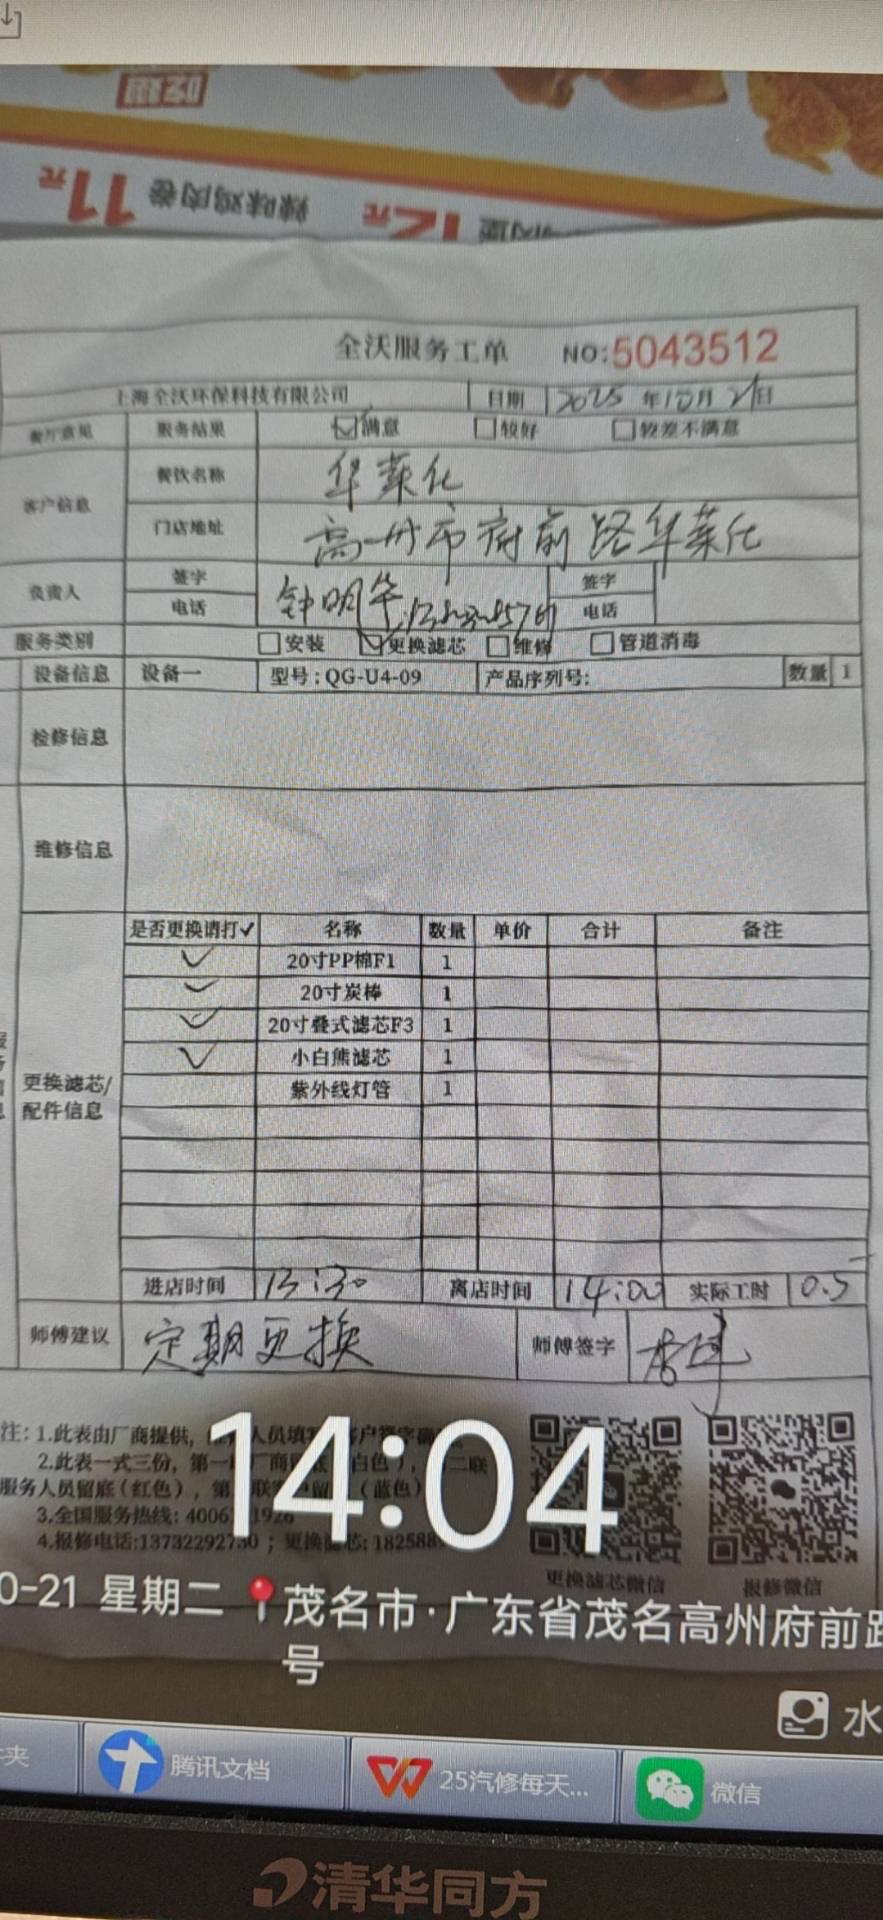 辣味鸡肉卷 11元
12元
全沃服务工单 NO:5043512
上海全沃环保科技有限公司 日期 2025年10月21日
餐厅意见 服务结果 满意 较好 较差不满意
客户信息 餐饮名称 华莱仕
门店地址 高州市府前路华莱仕
负责人 签字 钟明华 签字
电话 电话
服务类别 安装 更换滤芯 维修 管道消毒
设备信息 设备一 型号:QG-U4-09 产品序列号: 数量 1
检修信息
维修信息
是否更换请打✓ 名称 数量 单价 合计 备注
✓ 20寸PP棉F1 1
✓ 20寸炭棒 1
✓ 20寸叠式滤芯F3 1
✓ 小白熊滤芯 1
更换滤芯/
配件信息
紫外线灯管 1
进店时间 13:30 离店时间 14:00 实际工时 0.5
师傅建议 定期更换 师傅签字
注: 1.此表由厂商提供,
2.此表一式三份, 第一
服务人员留底(红色), 第 (蓝色)
3.全国服务热线: 4006
4.报修电话:13732292730 ; 更换滤芯: 18258
更换滤芯微信 报修微信
14:04
0-21 星期二 茂名市·广东省茂名高州府前路
号
水
夹 腾讯文档 25汽修每天... 微信
清华同方